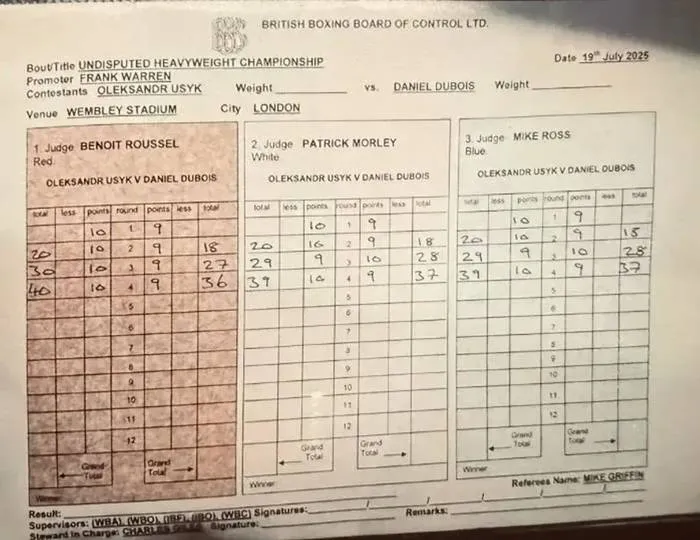 BRITISH BOXING BOARD OF CONTROL LTD.
Bout/Title UNDISPUTED HEAVYWEIGHT CHAMPIONSHIP Date 19th July 2025
Promoter FRANK WARREN
Contestants OLEKSANDR USYK Weight vs. DANIEL DUBOIS Weight
Venue WEMBLEY STADIUM City LONDON
1. Judge BENOIT ROUSSEL
Red
OLEKSANDR USYK V DANIEL DUBOIS
total less points round points less total
10 1 9
20 10 2 9 18
30 10 3 9 27
40 10 4 9 36
5
6
7
8
9
10
11
12
Grand Total Grand Total
Winner
2. Judge PATRICK MORLEY
White
OLEKSANDR USYK V DANIEL DUBOIS
total less points round points less total
10 1 9
20 10 2 9 18
29 9 3 10 28
39 10 4 9 37
5
6
7
8
9
10
11
12
Grand Total Grand Total
Winner
3. Judge MIKE ROSS
Blue
OLEKSANDR USYK V DANIEL DUBOIS
total less points round points less total
10 1 9
20 10 2 9 18
29 9 3 10 28
39 10 4 9 37
5
6
7
8
9
10
11
12
Grand Total Grand Total
Winner
Referees Name: MIKE GRIFFIN
Result:
Supervisors: (WBA), (WBO), (IBF), (IBO), (WBC) Signatures: / / / /
Steward in Charge: CHARLES Signature: Remarks: